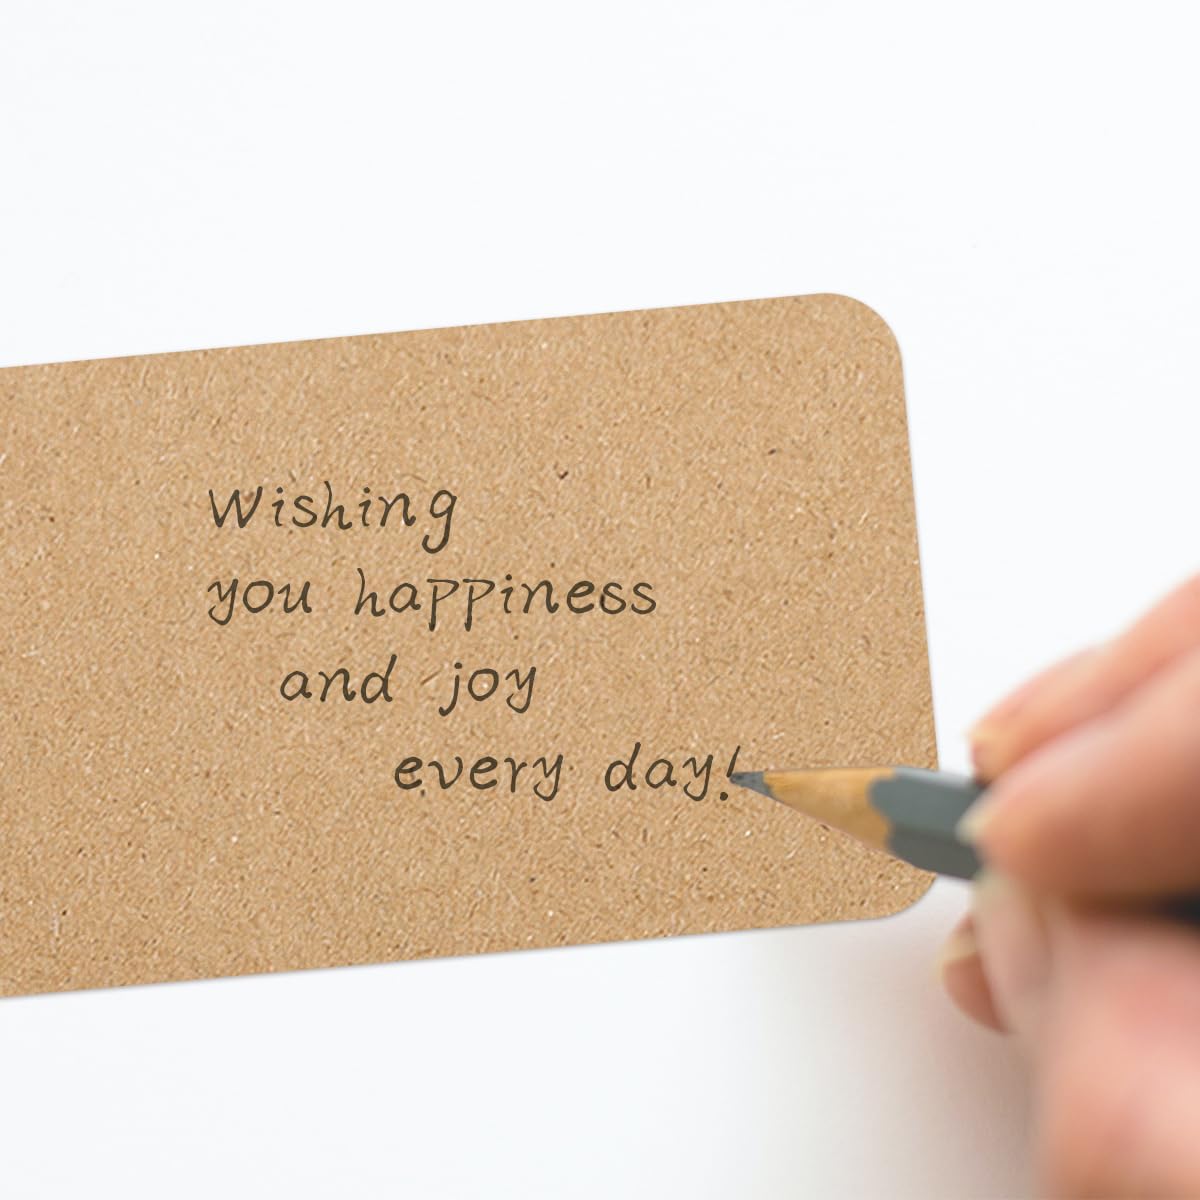 Wishing
you happiness
and joy
every day!